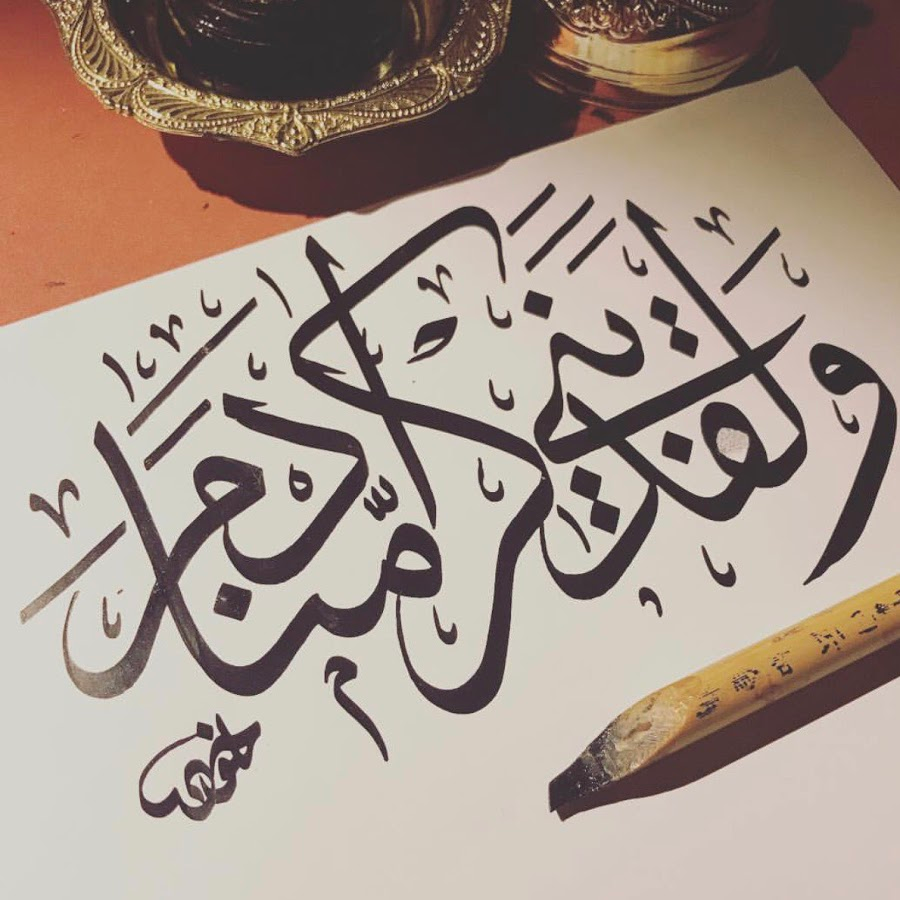 وَلَقَدْ كَرَّمْنَا بَنِي آدَمَ